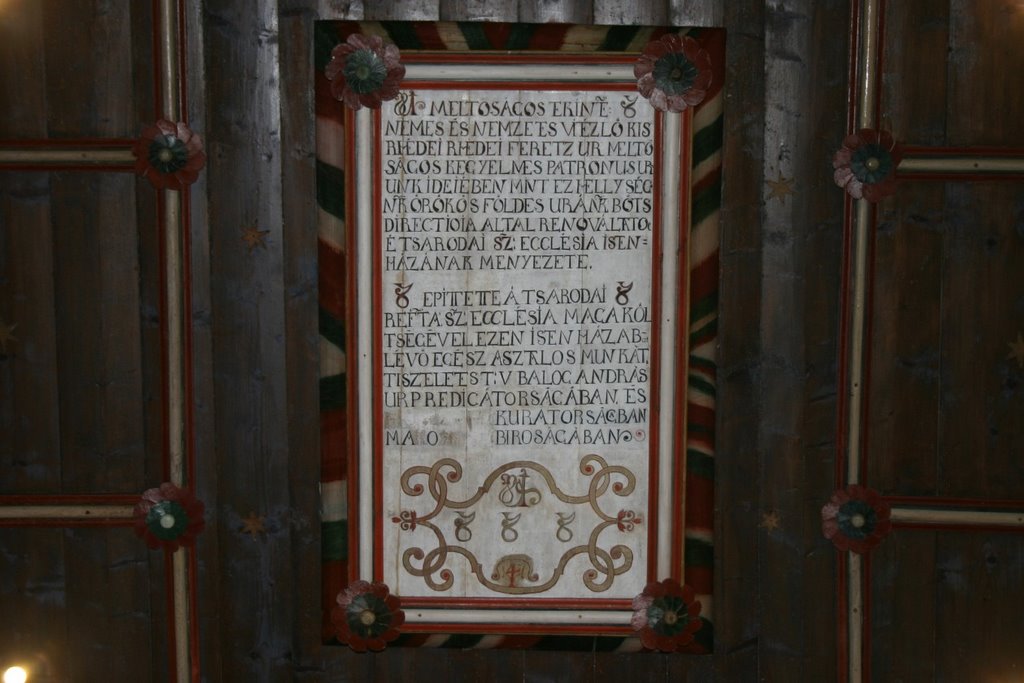 MELTOSÁGOS TEKINTE:
NEMES ÉS NEMZETS VITÉZLŐ KIS
RHÉDEI RHÉDEI FERETZ UR MELTÓ
SÁGOS KEGYELMES PATRONUS UR
UNK IDEIÉBEN MINT EZ HELLYSÉG
NEK ÖRÖKÖS FÖLDES URÁNK BŐTS
DIRECTIOIA ALTAL RENOVÁLTO
É TSARODAI SZ: ECCLÉSIA ISEN=
HÁZÁNAK MENYEZETE.
EPITTETTE A TSARODAI
REFTA SZ ECCLÉSIA MAGA KÖL
TSÉGÉVEL EZEN ISEN HÁZAB
LÉVŐ EGÉSZ ASZTLOS MUNKÁT,
TISZELETES T: V BALOG ANDRÁS
UR PREDICÁTORSÁGÁBAN ÉS
KURATORSÁGBAN
BIROSÁGÁBAN